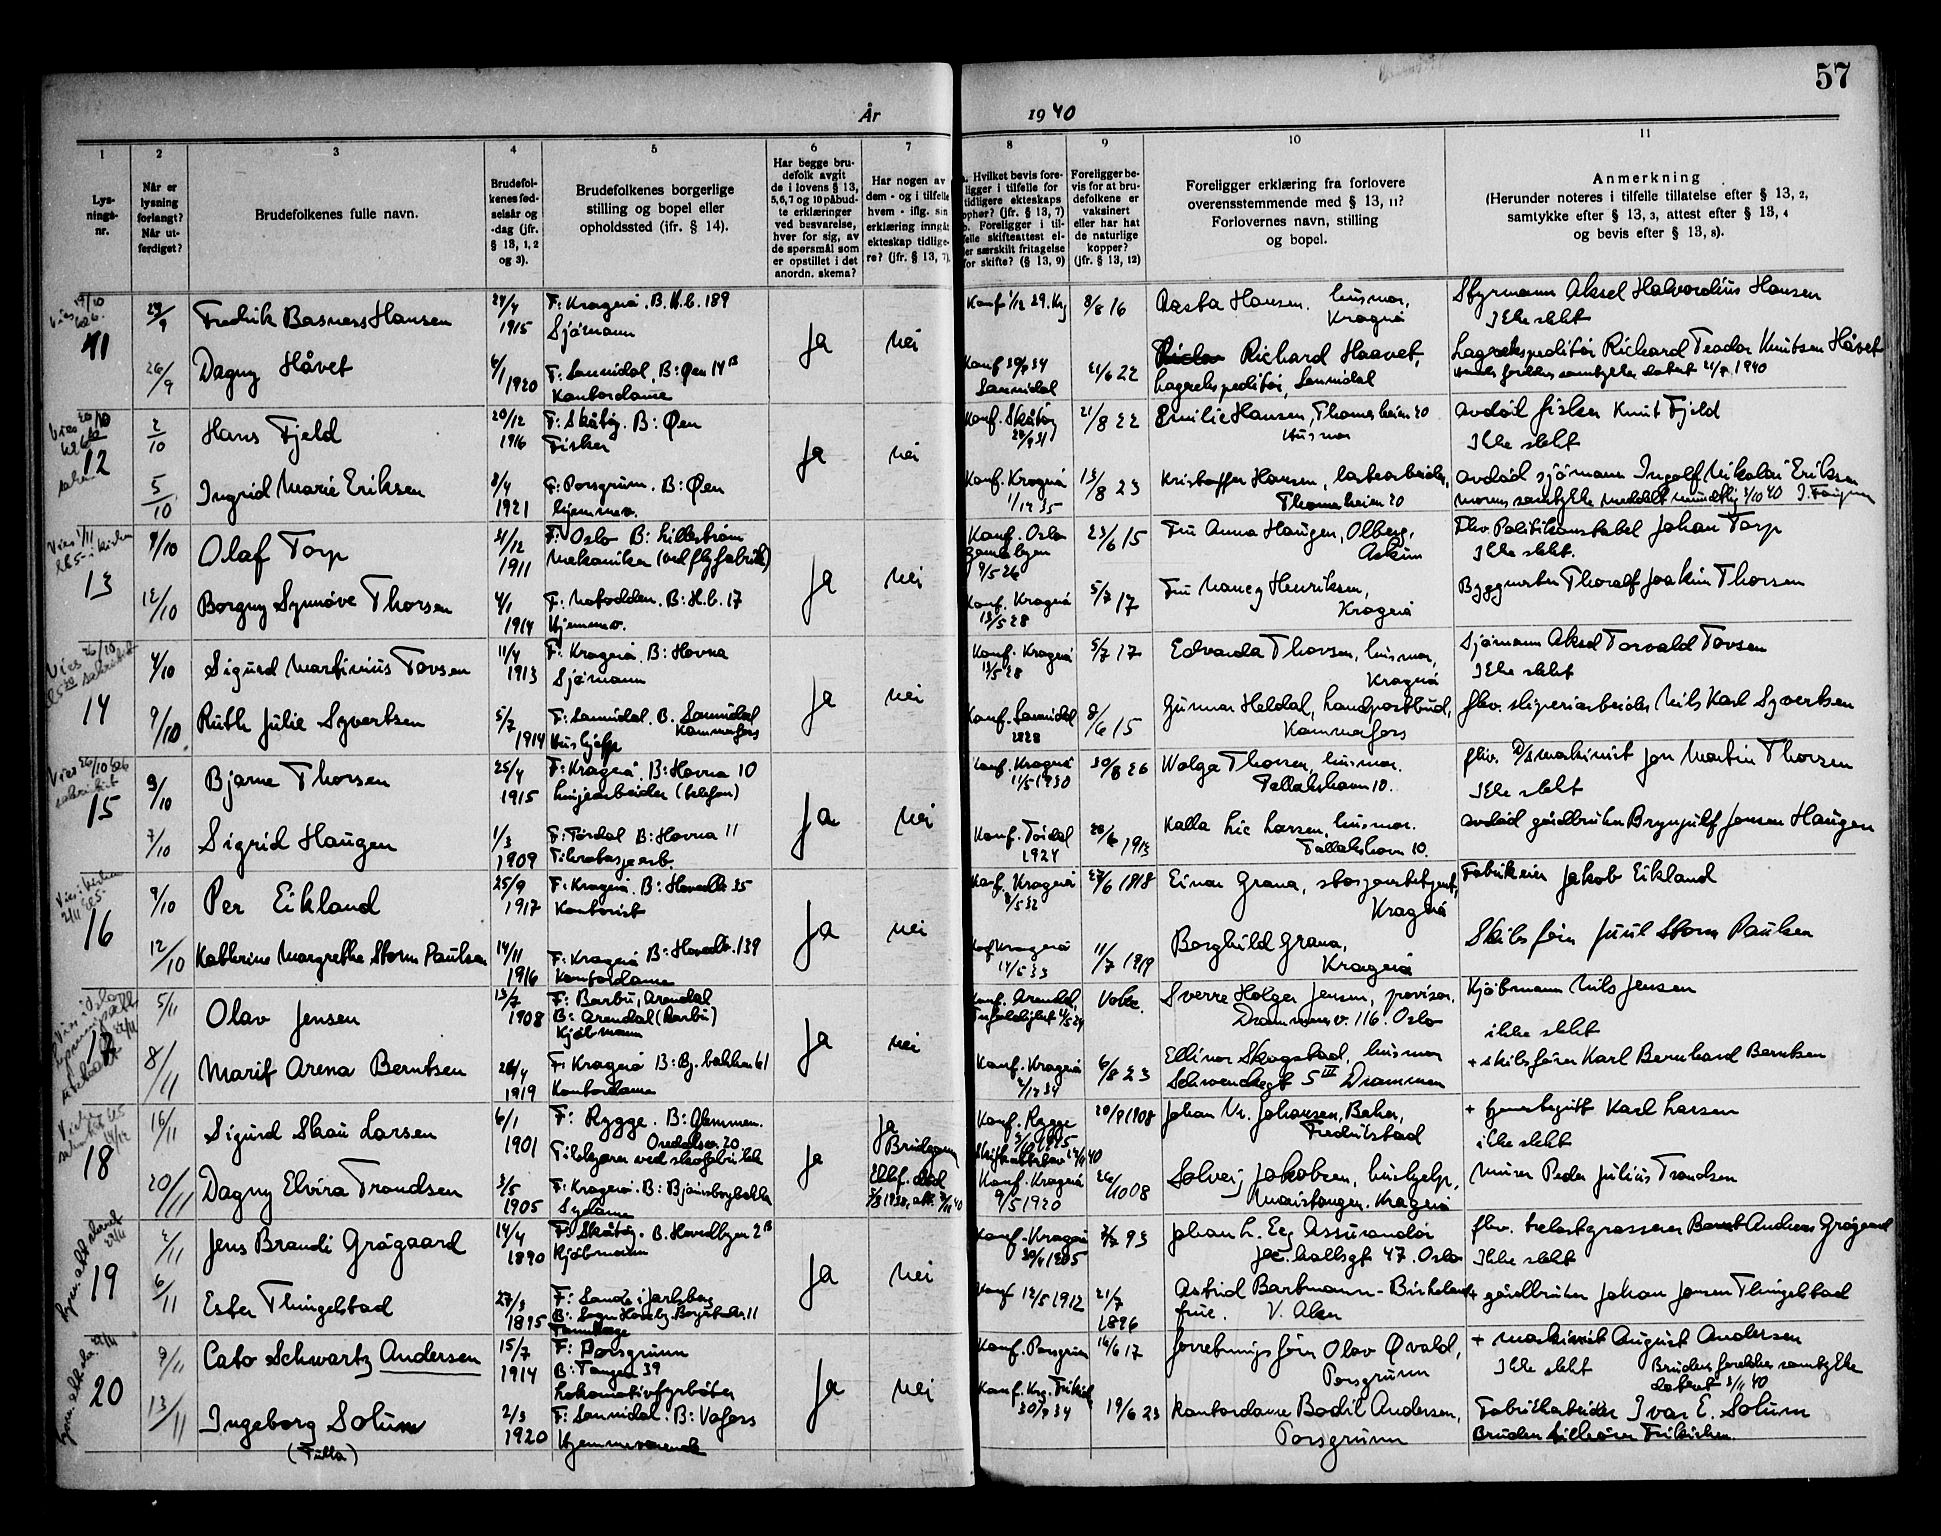 57
År 1940
1
Lys-
nings-
nr.
2
Når er
lysning
forlangt?
Når ut-
ferdiget?
3
Brudefolkenes fulle navn.
4
Brudefol-
kenes fød-
selsår og
-dag (jfr.
§ 13, 1, 2
og 3).
5
Brudefolkenes borgerlige
stilling og bopel eller
opholdssted (jfr. § 14).
6
Har begge bru-
defolk avgit
de i lovens § 13,
5, 6, 7 og 10 påbud-
te erklæringer
ved besvarelse,
hver for sig, av
de spørsmål som
er opstillet i det
anordn. skema?
7
Har nogen av
dem - og i tilfelle
hvem - iflg. sin
erklæring inngått
ekteskap tidlige-
re? (jfr. § 13, 7).
8
Hvilket bevis fore-
ligger i tilfelle for
tidligere ekteskaps
ophør? (jfr. § 13, 7)
b. Foreligger i til-
felle skifteattest el-
ler særskilt fritagelse
for skifte? (§ 13, 9)
9
Foreligger be-
vis for at bru-
defolkene er
vaksinert
eller har hat
de naturlige
kopper?
(jfr. § 13, 12)
10
Foreligger erklæring fra forlovere
overensstemmende med § 13, 11?
Forlovernes navn, stilling
og bopel.
11
Anmerkning
(Herunder noteres i tilfelle tillatelse efter § 13, 2,
samtykke efter § 13, 3, attest efter § 13, 4
og bevis efter § 13, 8).
11
Fredrik Basness Hansen
1915
F: Kragerø. B. H.b. 189
Sjømann
Ja
nei
8/8 16
Aasta Hansen. husmor,
Kragerø
Styrmann Aksel Halvordius Hansen
Ikke slekt
26/9
Dagny Håvet
6/1 1920
F: Sannidal, B: Øen 14 B
Kontordame
Konf
Sannidal
21/6 22
Richard Haavet,
lagerekspeditør, Sannidal
Lagerekspeditør Richard Teodor Knutsen Håvet
12
2/10
Hans Fjeld
20/12
1916
F: Skåtøy. B: Øen
Fisker
Ja
nei
Konf. Skåtøy
21/8 22
Emilie Hansen, Thomesheien 20
Husmor
avdød fisker Knut Fjeld
Ikke slekt
5/10
Ingrid Marie Eriksen
8/4
1921
F: Porsgrunn. B: Øen
hjemmev.
Konf. Kragerø
13/8 23
Kristoffer Hansen, lastearbeider,
Thomesheien 20
avdød sjømann Ingolf Nikolai Eriksen
13
9/10
Olaf Torp
1911
F: Oslo B: Lillestrøm
Mekaniker (ved flyfabrik)
Ja
nei
Konf. Oslo
Gamlebyen
9/5 26
23/6 15
Fru Anna Haugen, Olberg,
Askim
Fhv. Politikonstabel Johan Torp
Ikke slekt.
12/10
Borgny Synnøve Thorsen
4/1
1914
F: Notodden. B: H.b. 17
Hjemmev.
Konf. Kragerø
13/5 28
5/7 17
Fru Nancy Henriksen,
Kragerø
Byggmester Thoralf Joakim Thorsen
14
4/10
Sigurd Martinius Tovsen
11/4
1913
F: Kragerø. B: Hovna
Sjømann
Ja
nei
Konf. Kragerø
13/5 28
5/7 17
Edvarda Thorsen, husmor,
Kragerø
Sjømann Aksel Torvald Tovsen
Ikke slekt
9/10
Ruth Julie Syvertsen
5/7
1914
F: Sannidal. B. Sannidal
Kammerfoss
Hushjelp
Konf. Sannidal
1928
8/6 15
Gunnar Heldal, landpostbud,
Kammerfoss
fhv. sliperiarbeider Nils Karl Syvertsen
15
9/10
Bjarne Thorsen
25/4
1915
F: Kragerø. B: Hovna 10
Linjearbeider (telefon)
Ja
nei
Konf. Kragerø
11/5 1930
30/8 26
Wolga Thorsen, husmor.
Tallakshavn 10.
fhv. D/S maskinist Jon Martin Thorsen
Ikke slekt
7/10
Sigrid Haugen
1/3
1909
F: Tørdal B: Hovna 11
Konf. Tørdal
1924
28/6 1913
Kalla Lie Larsen, husmor.
Tallakshavn 10.
avdød gårdbruker Brynjulf Jensen Haugen
16
9/10
Per Eikland
25/9
1917
F: Kragerø. B: Hovedb. 35
Kontorist
Ja
nei
Konf. Kragerø
8/5 32
27/6 1918
Einar Grana, stasjonsbetjent,
Kragerø
Fabrikeier Jakob Eikland
12/10
Kathrine Margrethe Storm Paulsen
14/11
1916
F: Kragerø B: Hovedb. 139
Kontordame
Konf. Kragerø
11/7 1919
Borghild Grana,
Kragerø
Skibsfører Juul Storm Paulsen
17
5/11
Olav Jensen
13/7
1908
F: Barbu, Arendal
B: Arendal (Barbu)
Kjøbmann
Ja
nei
Konf. Arendal,
Trefoldighet
Vaks.
Sverre Holger Jensen, provisor,
Drammensv. 116. Oslo
Kjøbmann Nils Jensen
ikke slekt
8/11
Marif Arena Berntsen
1919
F: Kragerø B: Bj. bakken 61
Kontordame
Konf. Kragerø
6/8 23
Ellinor Skogstad, husmor
Schwenckegt 5 III Drammen
+ skibsfører Karl Bernhard Berntsen
18
16/11
Sigurd Skau Larsen
6/1
1901
F: Rygge. B: Glemmen.
Oredalsv. 20
Tilskjærer ved skofabrikk
Ja
Ja
Brudgom
Konf. Rygge
20/9 1908
Johan Vr. Johansen, Baker,
Fredrikstad
Karl Larsen
ikke slekt
20/11
Dagny Elvira Trondsen
3/5
1905
F: Kragerø. B: Bjørnsborgbakken
Sydame
Konf. Kragerø
9/5 1920
Solveig Jakobsen, hushjelp,
Kragerø
Murer Peder Julius Trondsen
19
2/11
Jens Brandi Grøgaard
14/4
1890
F: Skåtøy. B. Hovedbyen 2 B
Kjøbmann
Ja
nei
Konf. Kragerø
30/4 1905
3/7 93
Johan L. Eeg Assurandør
Jac. hallsgt 47. Oslo
fhv. trelastgrosserer Bernt Andreas Grøgaard
Ikke slekt
6/11
Ester Thingelstad
27/3
1895
F: Sande i Jarlsberg
Konf 12/5 1912
21/7
1896
Astrid Bartmann-Birkeland
frue. V. Aker
+ gårdbruker Johan Jensen Thingelstad
20
9/11
Cato Schwartz Andersen
15/7
1914
F: Porsgrunn
B: Tangen 39
Lokomotivfyrbøter
Ja
nei
Konf. Porsgrunn
16/6 17
forretningsfører Olav Øvald,
Porsgrunn
+ maskinist August Andersen
Ikke slekt
Brudens foreldres samtykke
datert 8/11 40
13/11
Ingeborg Solum
(Tulla)
2/3
1920
F: Sannidal. B: Vafoss
Hjemmeværende
Konf. Krg. Frikirke
30/9 34
19/6 23
Kontordame Bodil Andersen,
Porsgrunn
Fabrikarbeider Ivar E. Solum
Bruden tilhører Frikirken.